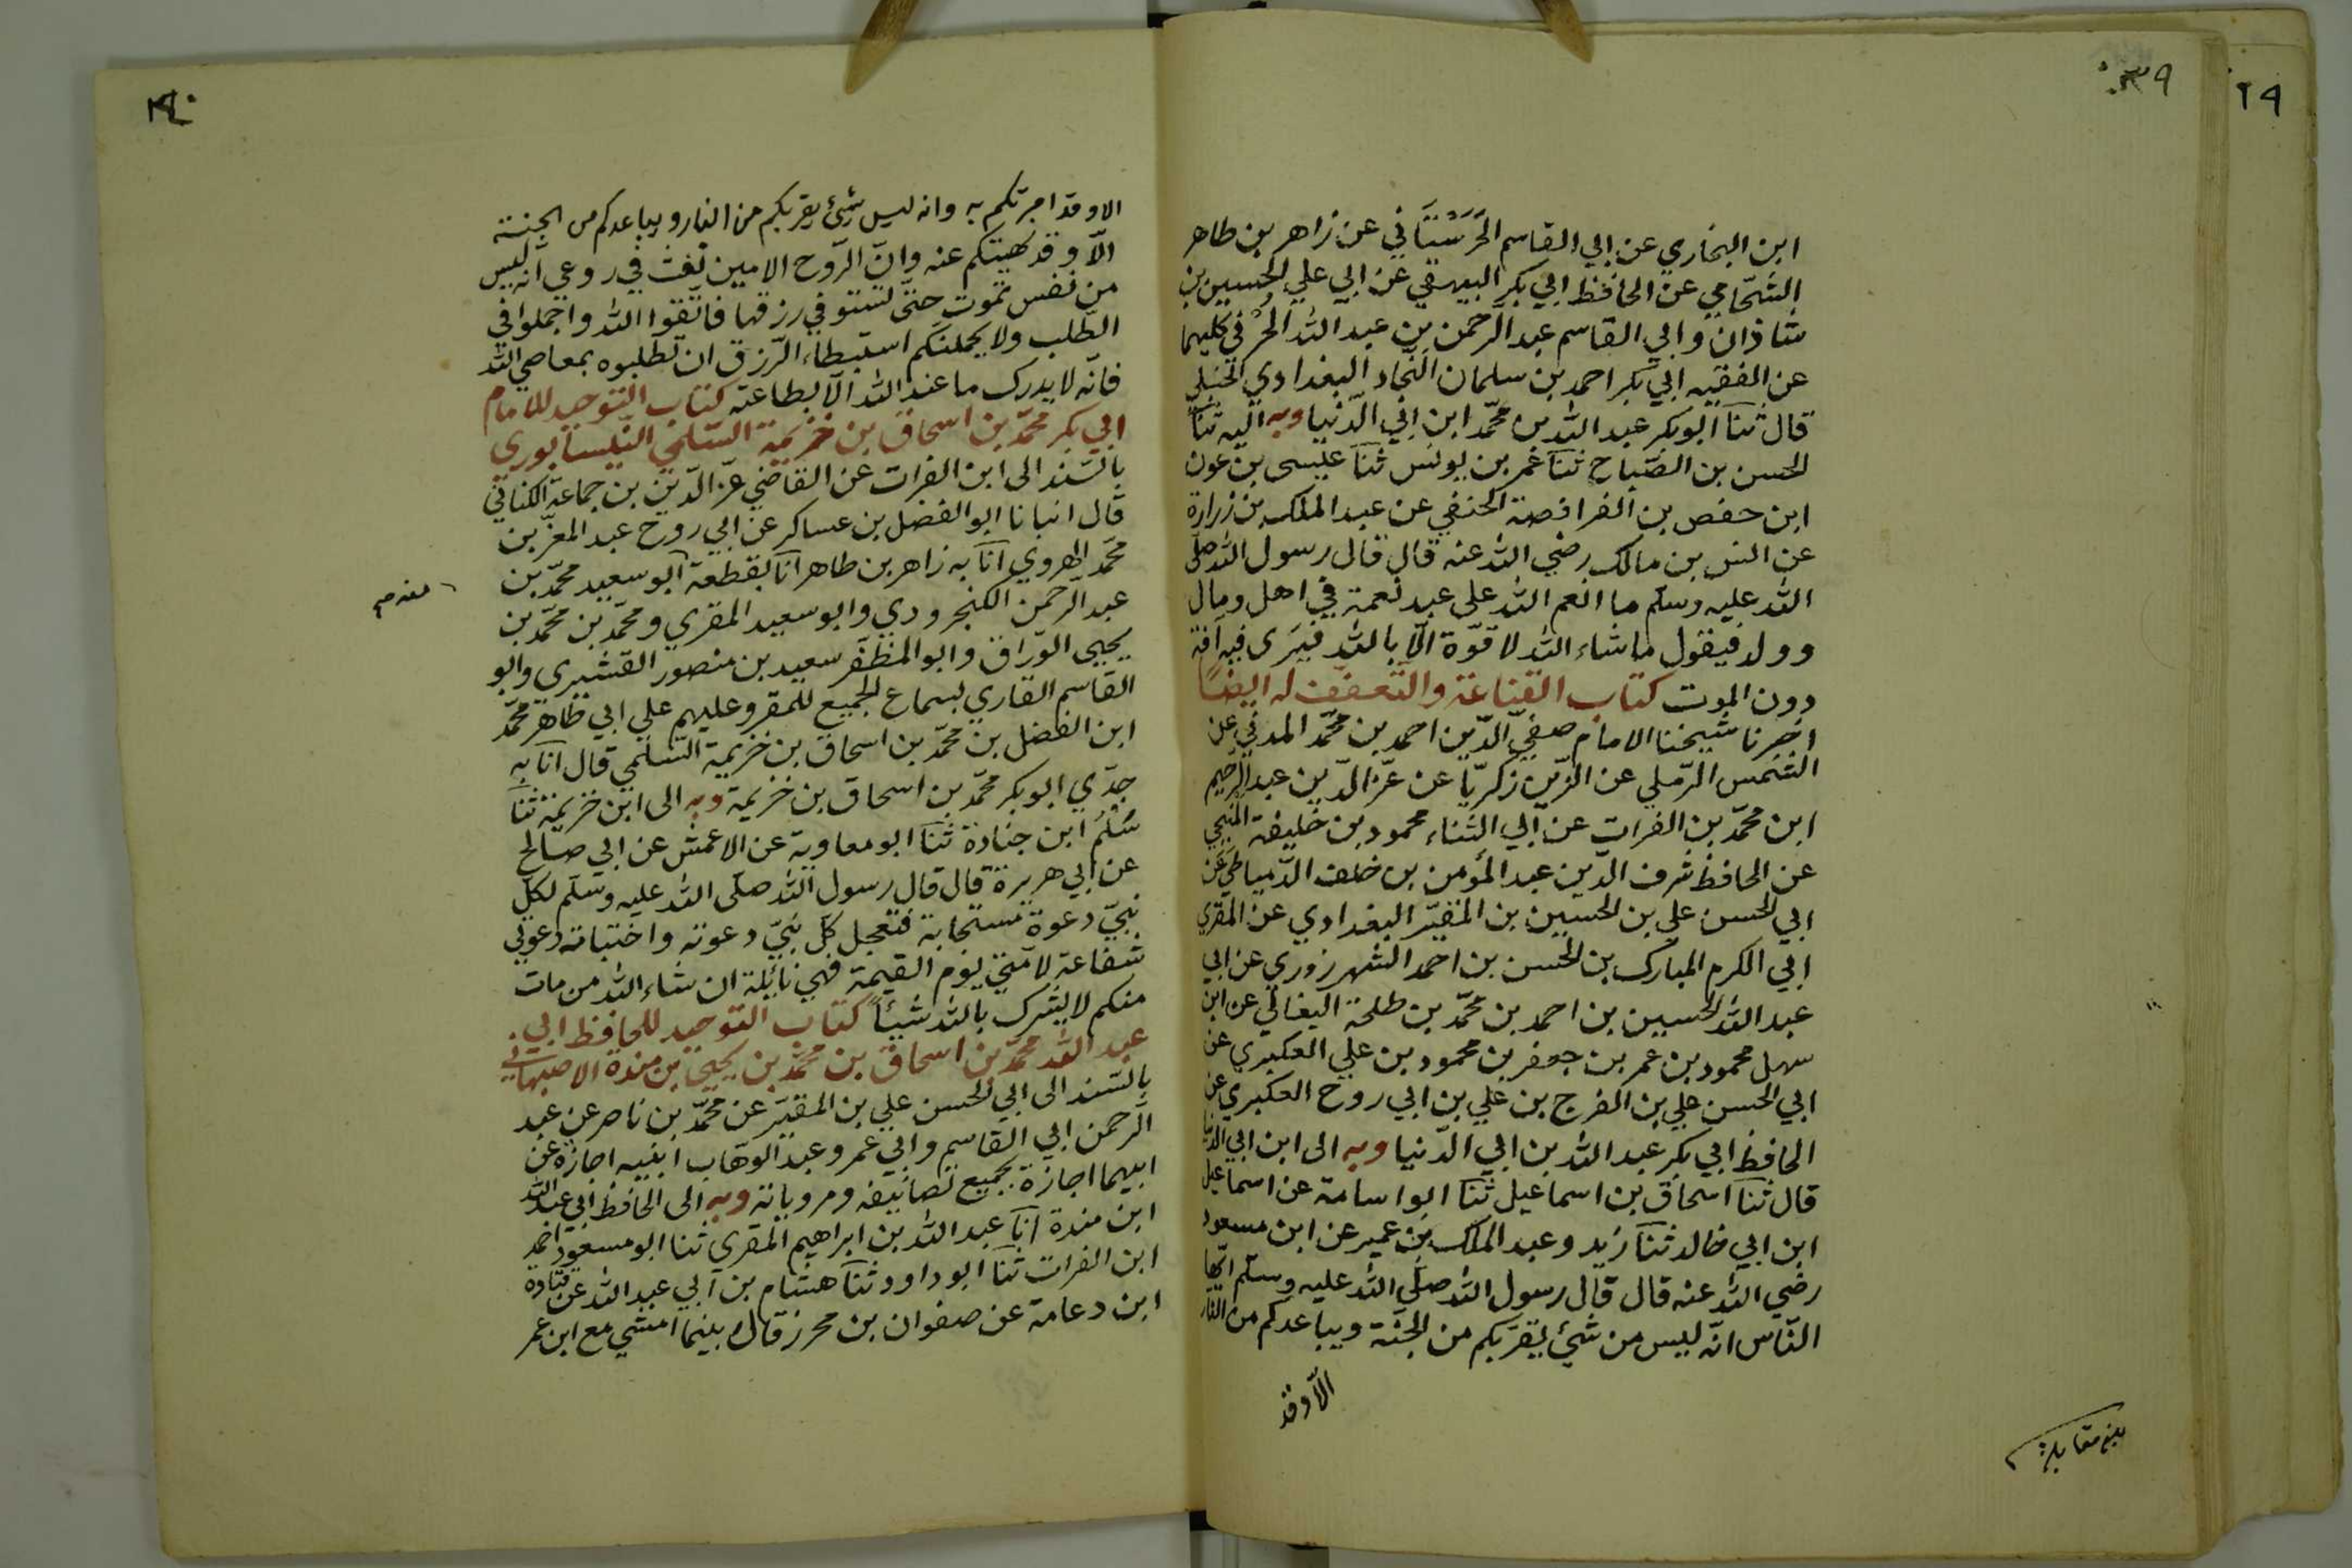 ٣٩
ابن البخاري عن ابي القاسم الحَرَسْتَاني عن زاهر بن طاهر
الشحّامي عن الحافظ ابي بكر البيهقي عن ابي علي الحسين بن
شاذان وابي القاسم عبد الرّحمن بن عبد الله الحُرْفي كليهما
عن الفقيه ابي بكر احمد بن سلمان النّجاد البغدادي الحنبلي
قال ثنا ابو بكر عبد الله بن محمّد ابن ابي الدّنيا وبه اليه ثنا
الحسن بن الصّباح ثنا عمر بن يونس ثنا عليسى بن عون
ابن حفص بن الفرافصة الحنفي عن عبد الملك بن زرارة
عن انس بن مالك رضي الله عنه قال قال رسول الله صلّى
الله عليه وسلّم ما انعم الله على عبد نعمة في اهل ومال
وولد فيقول ما شاء الله لا قوّة الّا بالله فيرى فيه آفة
دون الموت كتاب القناعة والتّعفّف له ايضًا
اخبرنا شيخنا الامام صفيّ الدّين احمد بن محمّد المدني عن
الشّمس الرّملي عن الزّين زكريّا عن عزّ الدّين عبد الرحيم
ابن محمّد بن الفرات عن ابي الثناء محمود بن خليفة المنبجي
عن الحافظ شرف الدّين عبد المؤمن بن خلف الدّمياطي عن
ابي الحسن علي بن الحسين بن المقيّر البغدادي عن المقري
ابي الكرم المبارك بن الحسن بن احمد الشهرزوري عن ابي
عبد الله الحسين بن احمد بن محمّد بن طلحة النعالي عن ابن
سهل محمود بن عمر بن جعفر بن محمود بن علي العكبري عن
ابي الحسن علي بن الفرج بن علي بن ابي روح العكبري عن
الحافظ ابي بكر عبد الله بن ابي الدّنيا وبه الى ابن ابي الدنيا
قال ثنا اسحاق بن اسماعيل ثنا ابو اسامة عن اسماعيل
ابن ابي خالد ثنا زيد وعبد الملك بن عمير عن ابن مسعود
رضي الله عنه قال قال رسول الله صلّى الله عليه وسلّم ايّها
النّاس انّه ليس من شيئ يقرّبكم من الجنّة ويباعدكم من النار
الّا وقد
بلغ مقابلة
٢٩
٤٠
الا وقد امرتكم به وانه ليس شيئ يقربكم من النار ويباعدكم من الجنة
الّا وقد نهيتكم عنه وانّ الرّوح الامين نفث في روعي انه ليس
من نفس تموت حتّى تستوفي رزقها فاتّقوا الله واجملوا في
الطّلب ولا يحملنّكم استبطاء الرّزق ان تطلبوه بمعاصي الله
فانّه لا يدرك ما عند الله الّا بطاعته كتاب التّوحيد للامام
ابي بكر محمّد بن اسحاق بن خزيمة السّلمي النّيسابوري
بالسّند الى ابن الفرات عن القاضي عزّ الدّين بن جماعة الكناني
قال انبانا ابو الفضل بن عساكر عن ابي روح عبد المعزّ بن
محمّد الهروي انا به زاهر بن طاهر انا بقطعة ابو سعيد محمّد بن
عبد الرّحمن الكنجرودي وابو سعيد المقري ومحمّد بن محمّد بن
يحيى الورّاق وابو المظفّر سعيد بن منصور القشيري وابو
القاسم القاري بسماع الجميع للمقرو عليهم علي ابي طاهر محمّد
ابن الفضل بن محمّد بن اسحاق بن خزيمة السّلمي قال انا به
جدّي ابو بكر محمّد بن اسحاق بن خزيمة وبه الى ابن خزيمة ثنا
سَلْمُ ابن جنادة ثنا ابو معاوية عن الاعمش عن ابي صالح
عن ابي هريرة قال قال رسول الله صلّى الله عليه وسلّم لكلّ
نبيّ دعوة مستجابة فتعجل كلّ نبيّ دعوته واختبات دعوتي
شفاعة لامّتي يوم القيمة فهي نائلة ان شاء الله من مات
منكم لا يشرك بالله شيئاً كتاب التوحيد للحافظ ابي
عبد الله محمّد بن اسحاق بن محمّد بن يحيى بن مندة الاصبهاني
بالسّند الى ابي الحسن علي بن المقيّر عن محمّد بن ناصر عن عبد
الرّحمن ابي القاسم وابي عمر وعبد الوهّاب ابنيه اجازة عن
ابيهما اجازة بجميع تصانيفه ومروياته وبه الى الحافظ ابي عبد الله
ابن مندة انا عبد الله بن ابراهيم المقرى ثنا ابو مسعود احمد
ابن الفرات ثنا ابو داود ثنا هشام بن ابي عبد الله عن قتادة
ابن دعامة عن صفوان بن محرز قال بينما امشي مع ابن عمر